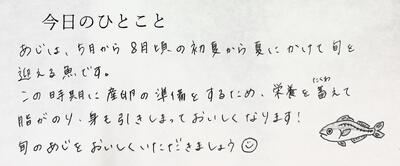 今日のひとこと
あじは、5月から8月頃の初夏から夏にかけて旬を
迎える魚です。
この時期に産卵の準備をするため、栄養を蓄えて
たくわ
脂がのり、身も引きしまっておいしくなります!
旬のあじをおいしくいただきましょう